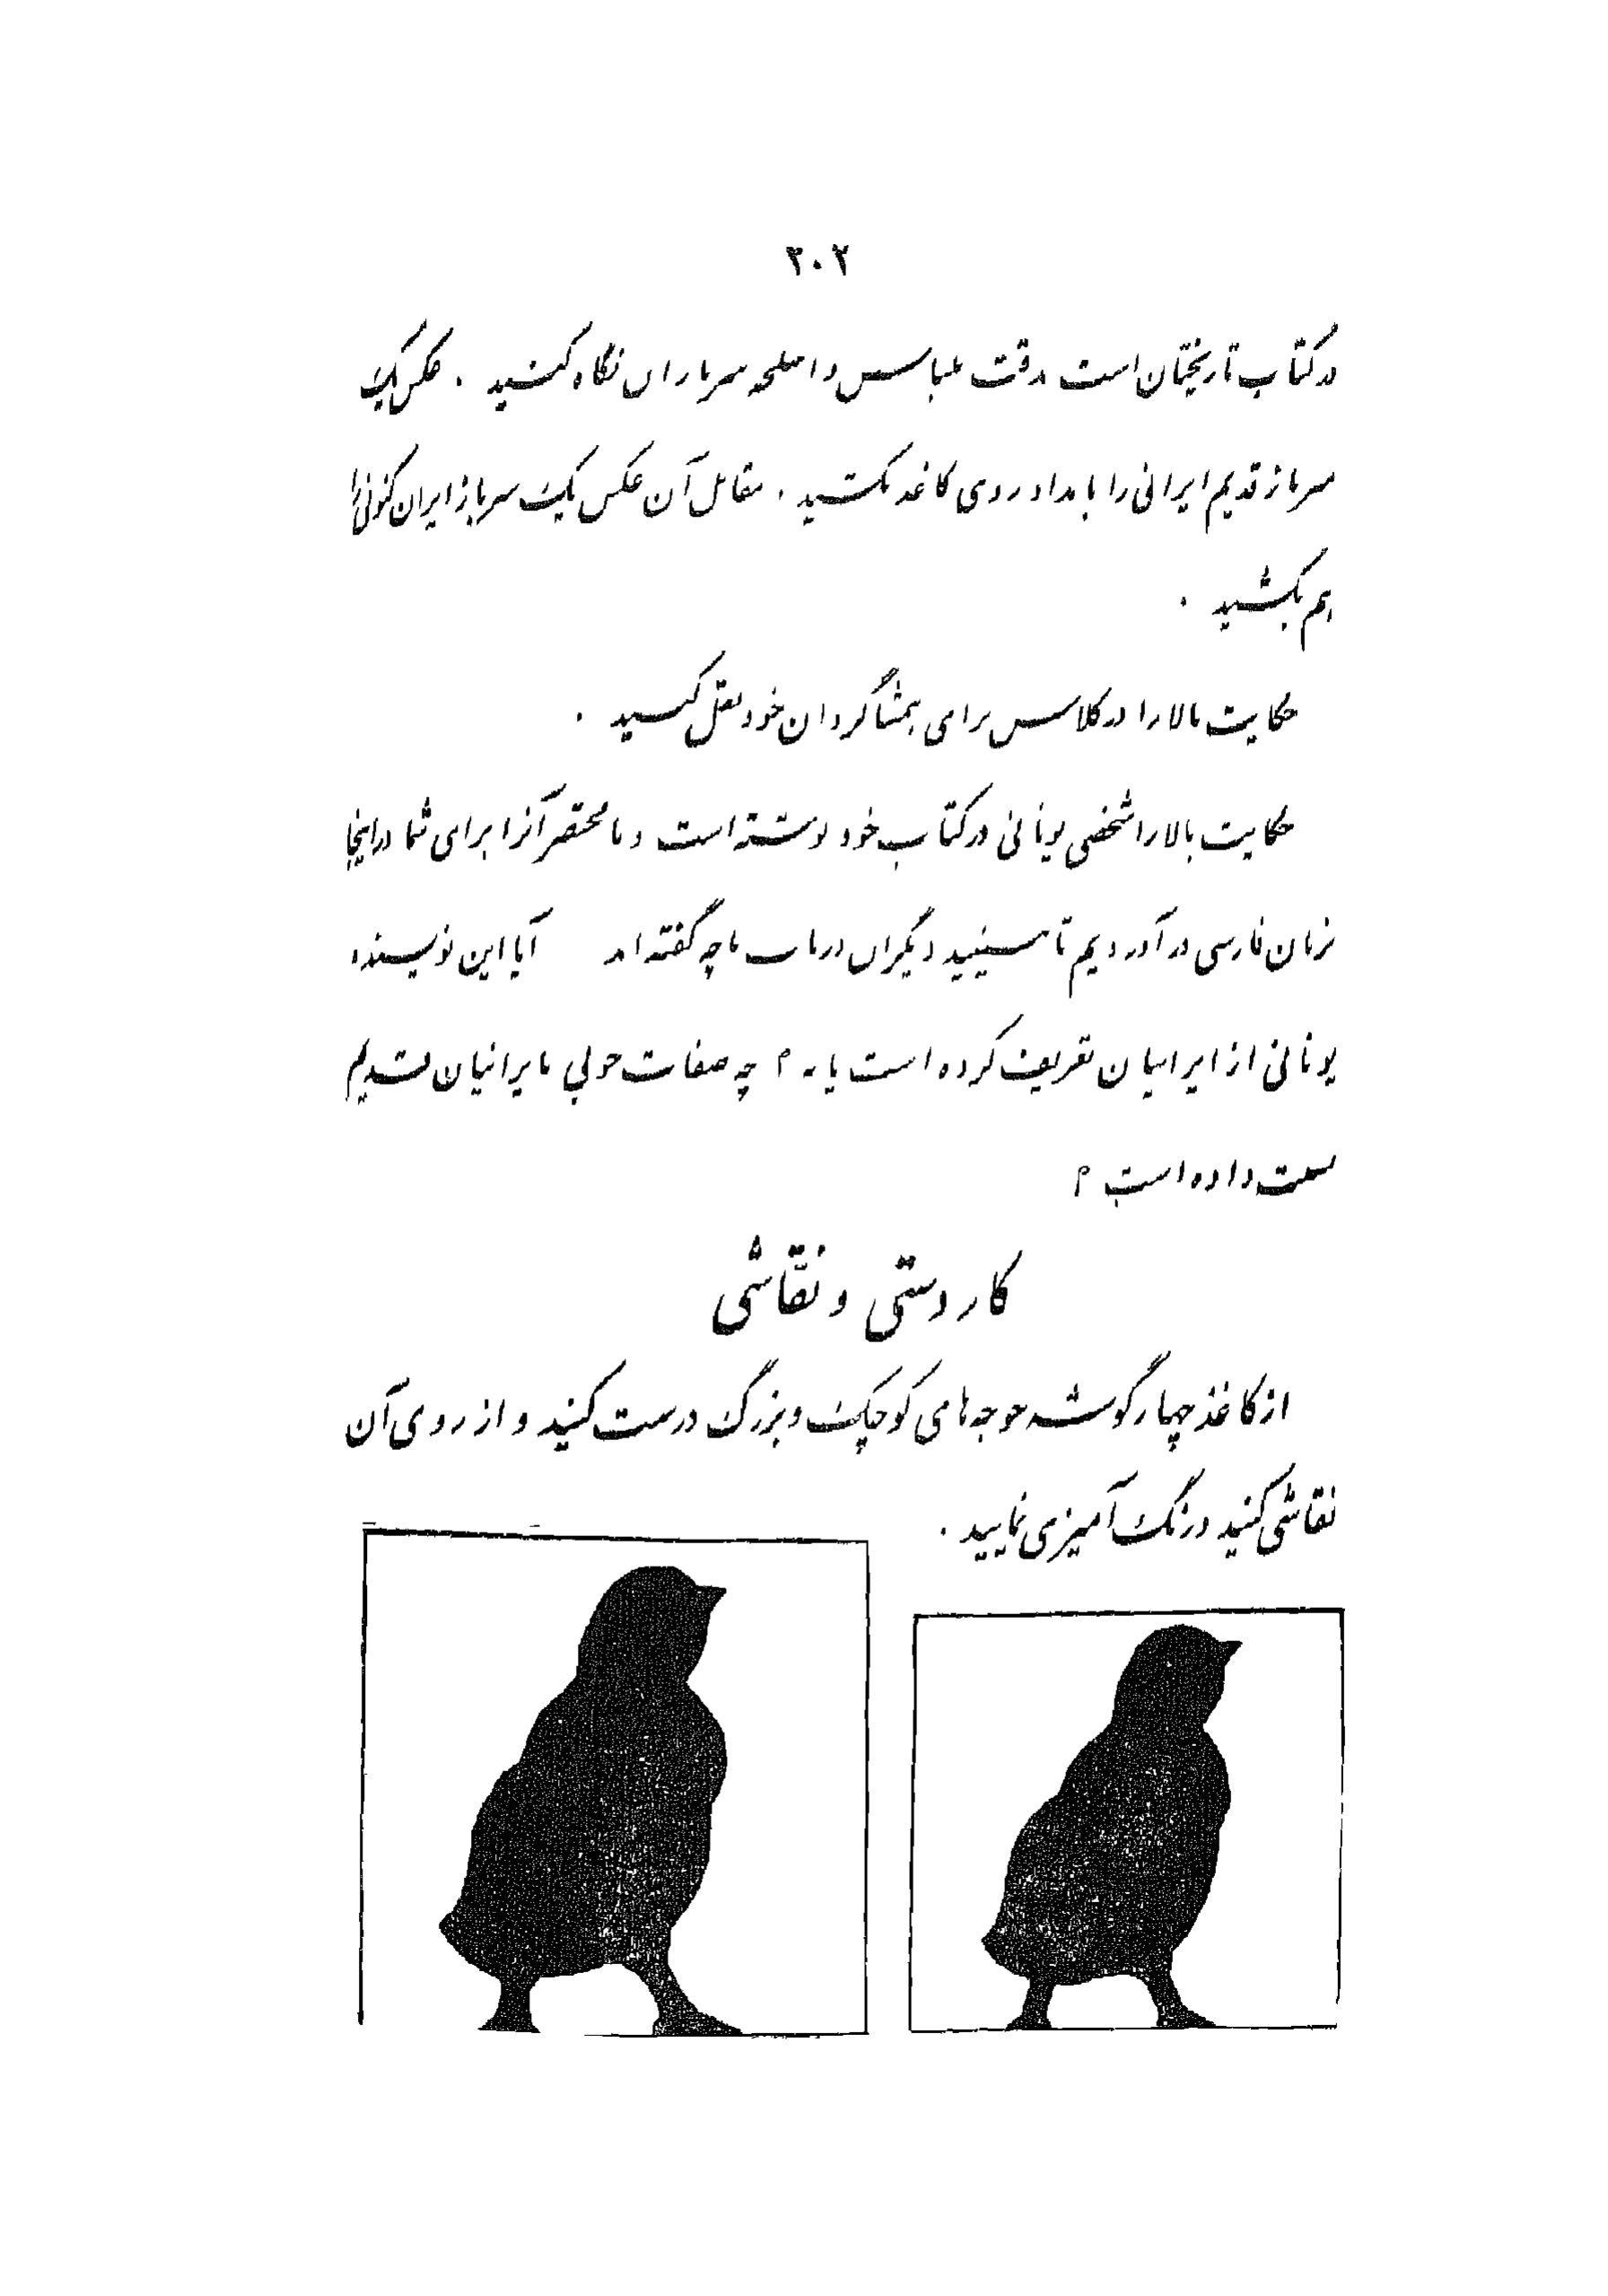 ۲۰۲
در کتاب تاریختان است بدقت بلباس و اسلحه سربازان نگاه کنید . عکس یک
سرباز قدیم ایرانی را با مداد روی کاغذ بکشید . مقابل آن عکس یک سرباز ایران کنونی را
هم بکشید .
حکایت بالا را در کلاس برای همشاگردان خود نقل کنید .
حکایت بالا را شخصی یونانی در کتاب خود نوشته است و ما مختصر آنرا برای شما در اینجا
بزبان فارسی در آوردیم تا ببینید دیگران درباب ما چه گفته اند آیا این نویسنده
یونانی از ایرانیان تعریف کرده است یا نه ؟ چه صفات خوبی بایرانیان قدیم
نسبت داده است ؟
کار دستی و نقّاشی
از کاغذ چهار گوشه جوجه های کوچک و بزرگ درست کنید و از روی آن
نقاشی کنید و رنگ آمیزی نمایید .